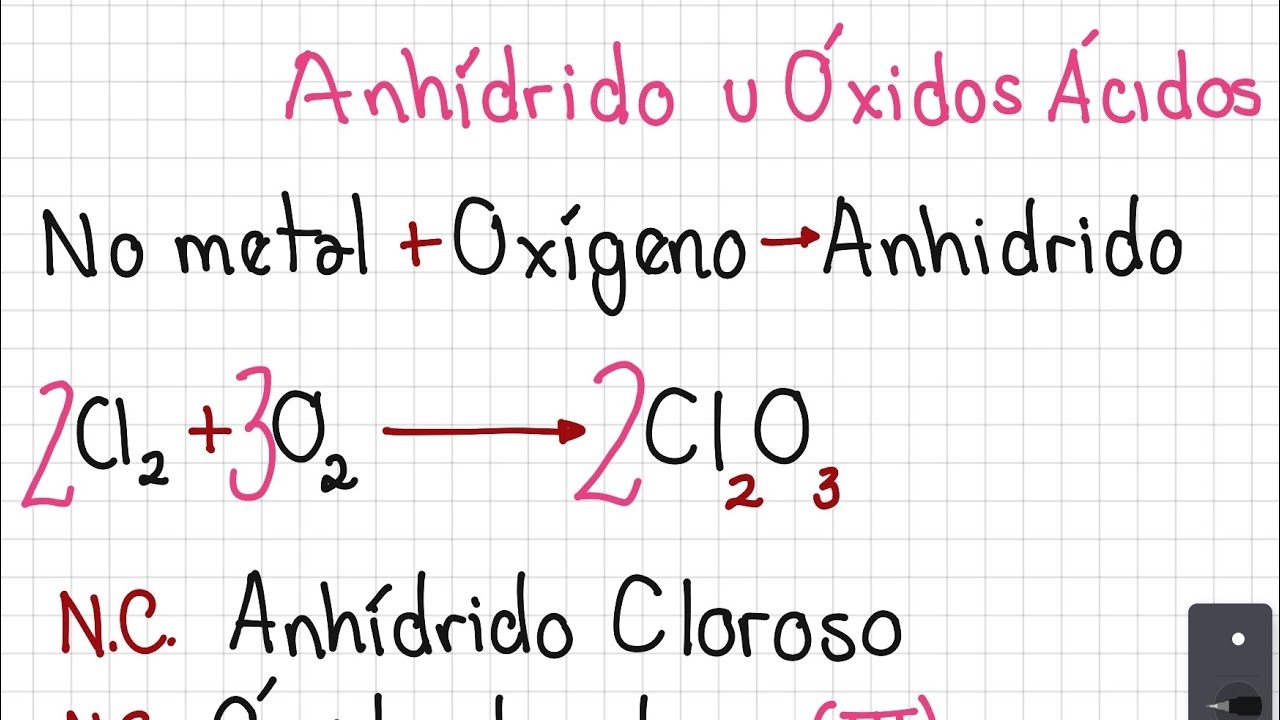 Anhídrido u Óxidos Ácidos
No metal + Oxígeno → Anhidrido
2Cl₂ + 3O₂ → 2Cl₂O₃
N.C. Anhídrido Cloroso